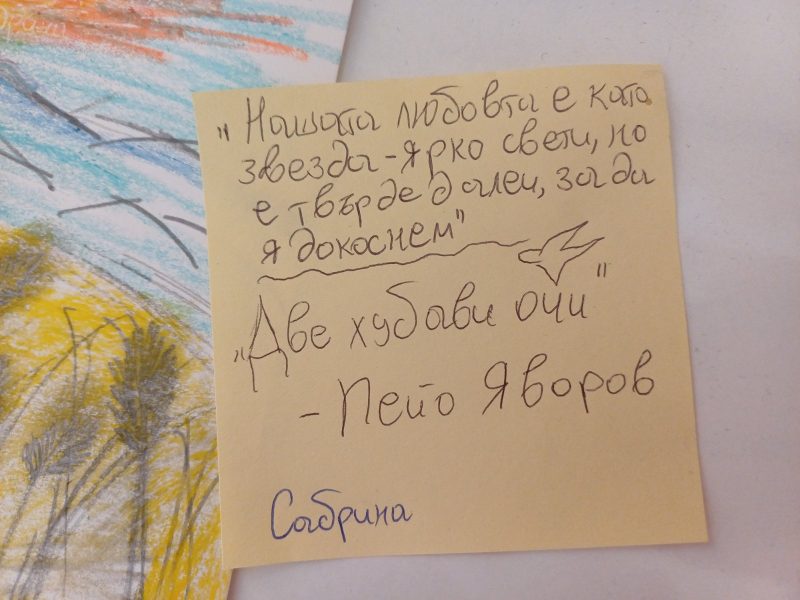 „Нашата любовта е като
звезда - ярко свети, но
е твърде далеч, за да
я докоснем"
„Две хубави очи"
- Пейо Яворов
Сабрина